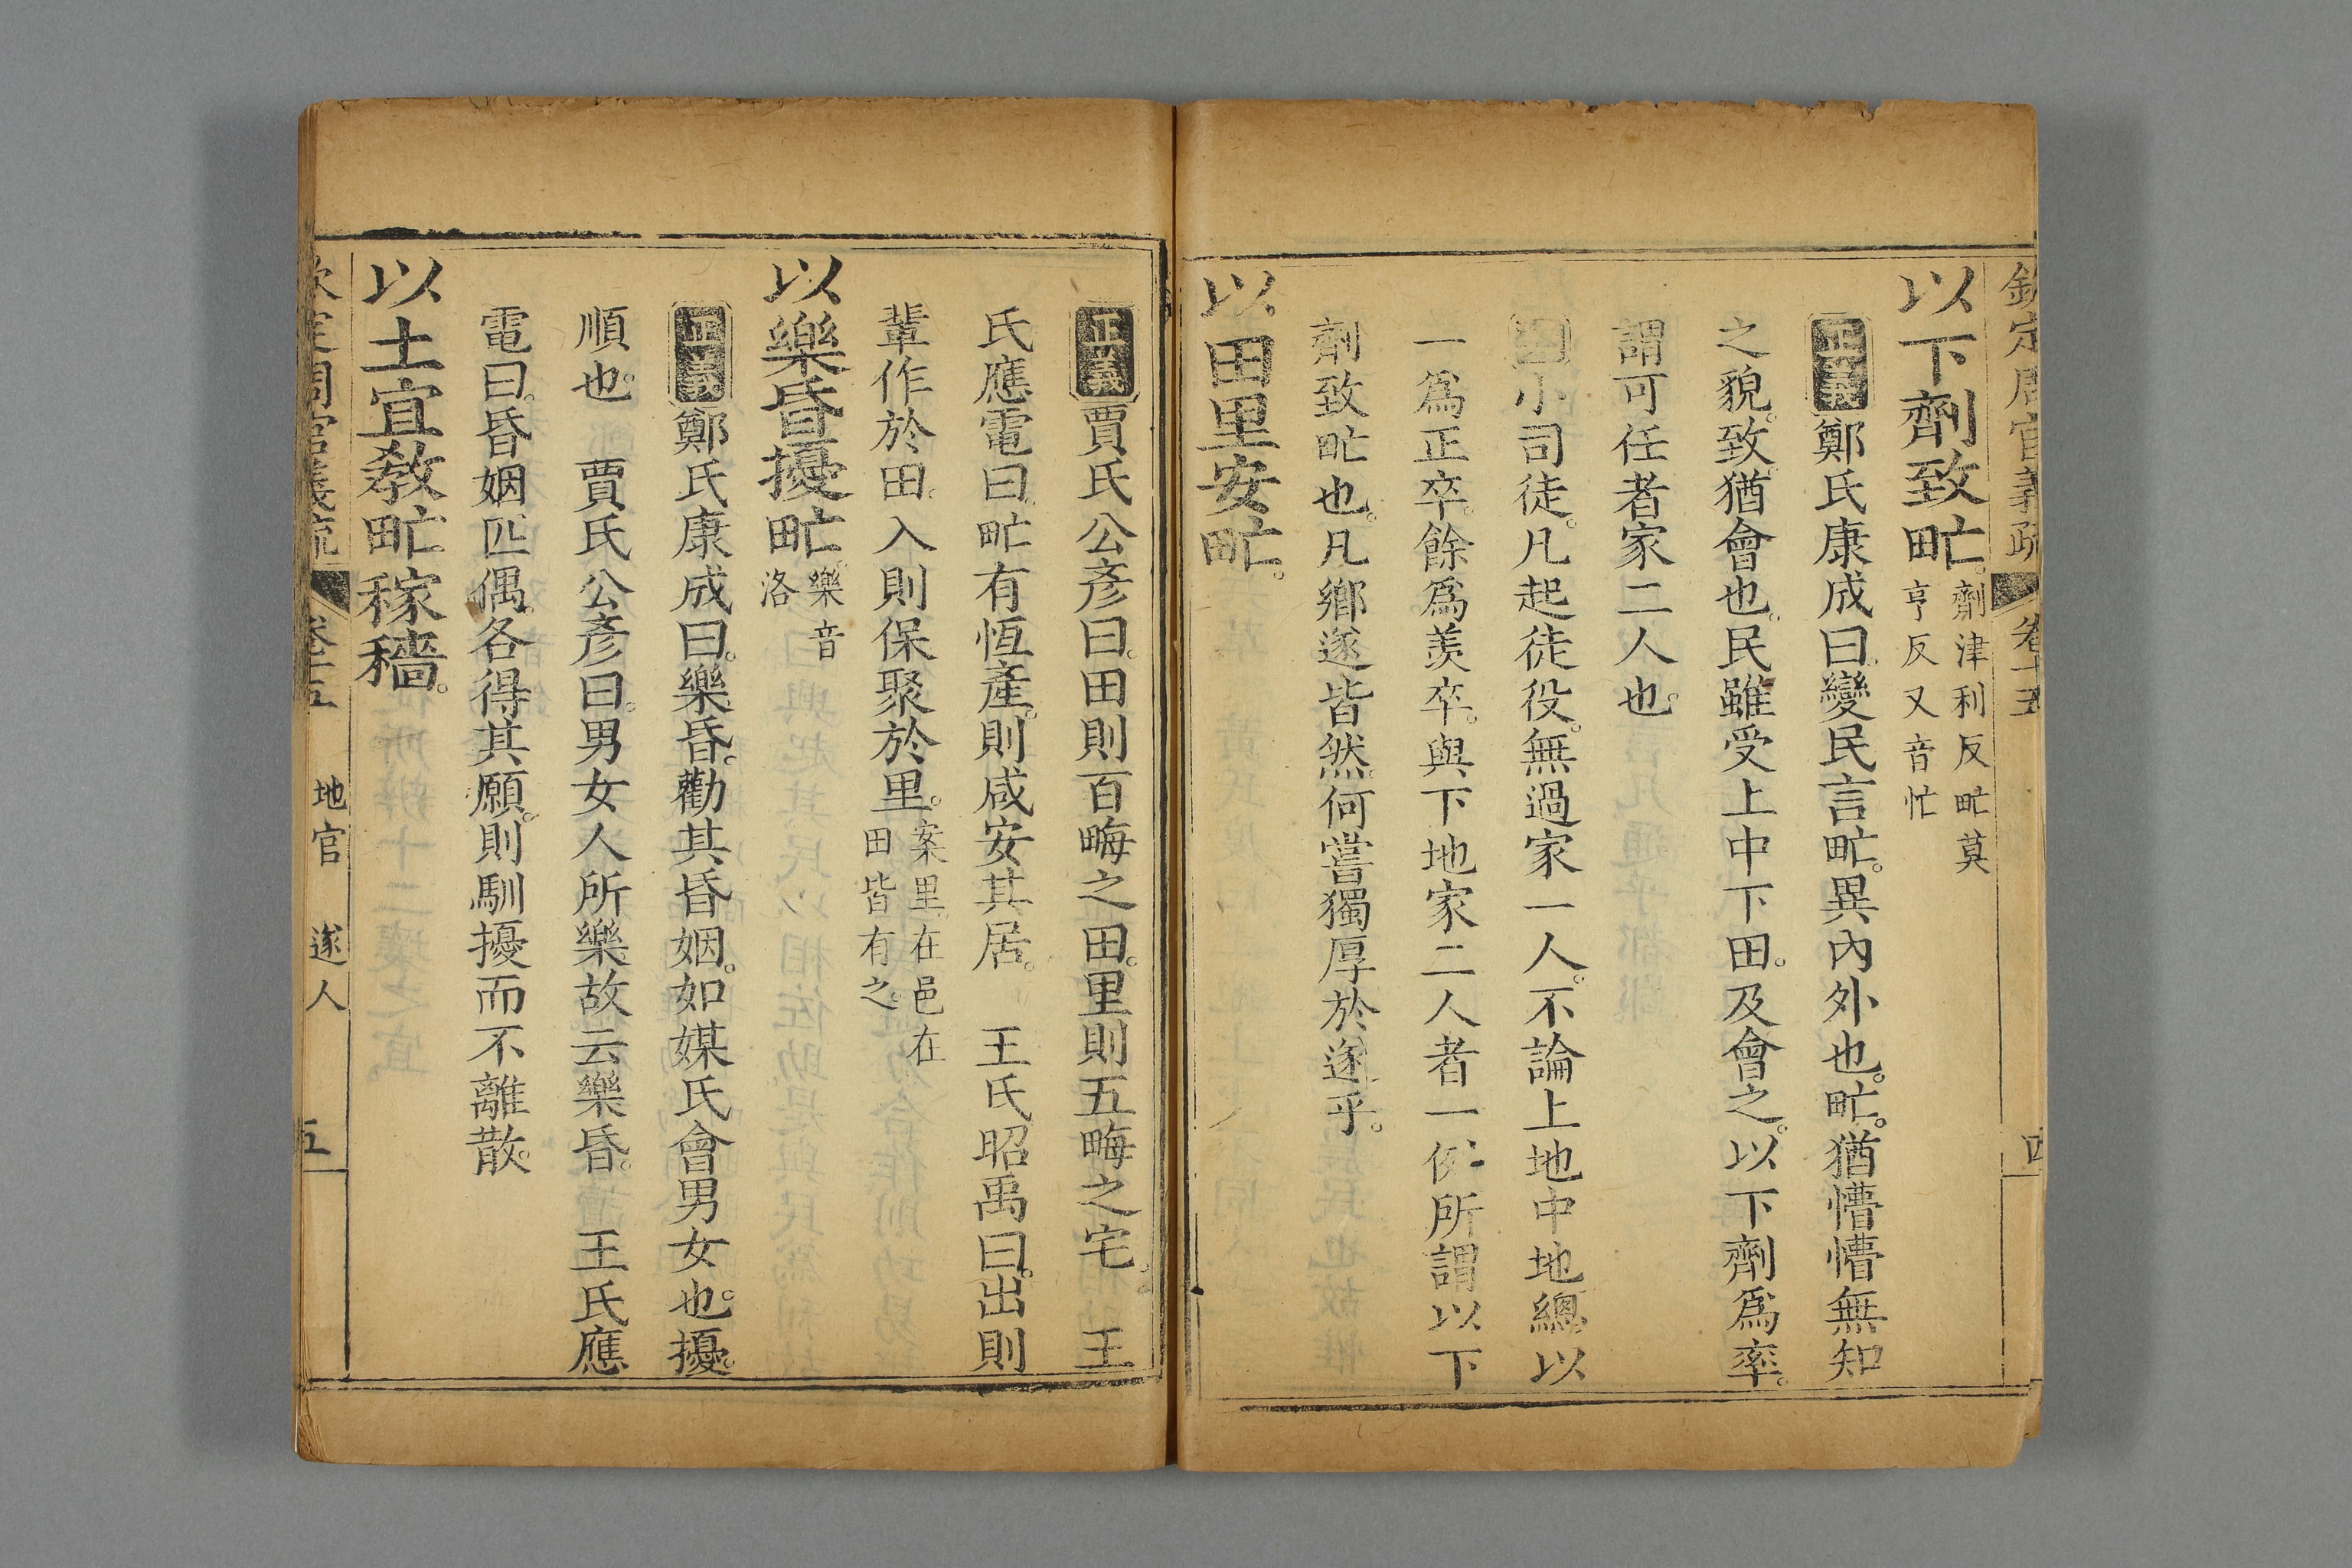 欽定周官義疏 卷十五 四
以下劑致甿。劑津利反甿莫
亨反又音忙
正義鄭氏康成曰。變民言甿。異內外也。甿。猶懵懵無知
之貌。致。猶會也。民雖受上中下田。及會之。以下劑爲率。
謂可任者家二人也。
小司徒。凡起徒役。無過家一人。不論上地中地總以
一爲正卒。餘爲羨卒。與下地家二人者一例。所謂以下
劑致甿也。凡鄉遂皆然。何嘗獨厚於遂乎。
以田里安甿。
正義賈氏公彥曰。田則百畮之田。里則五畮之宅。 王
氏應電曰。甿有恆產。則咸安其居。 王氏昭禹曰。出則
輩作於田。入則保聚於里。案里在邑在
田皆有之。
以樂昏擾甿。樂音
洛
正義鄭氏康成曰。樂昏。勸其昏姻。如媒氏會男女也。擾。
順也。 賈氏公彥曰。男女人所樂。故云樂昏。 王氏應
電曰。昏姻匹偶。各得其願。則馴擾而不離散。
以土宜敎甿稼穡。
欽定周官義疏 卷十五 地官 遂人 五